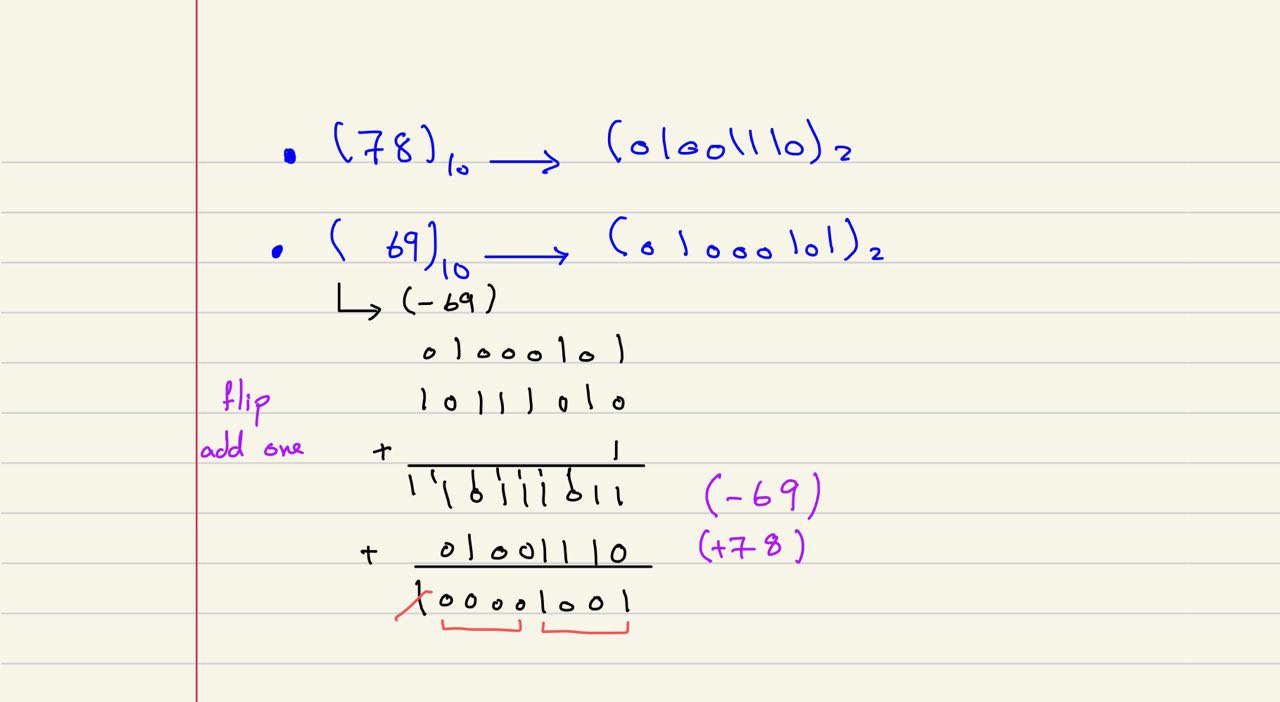 • (78)₁₀ → (01001110)₂
• ( 69)₁₀ → (01000101)₂
↳ (-69)
01000101
flip 10111010
add one + 1
10111011 (-69)
+ 01001110 (+78)
100001001